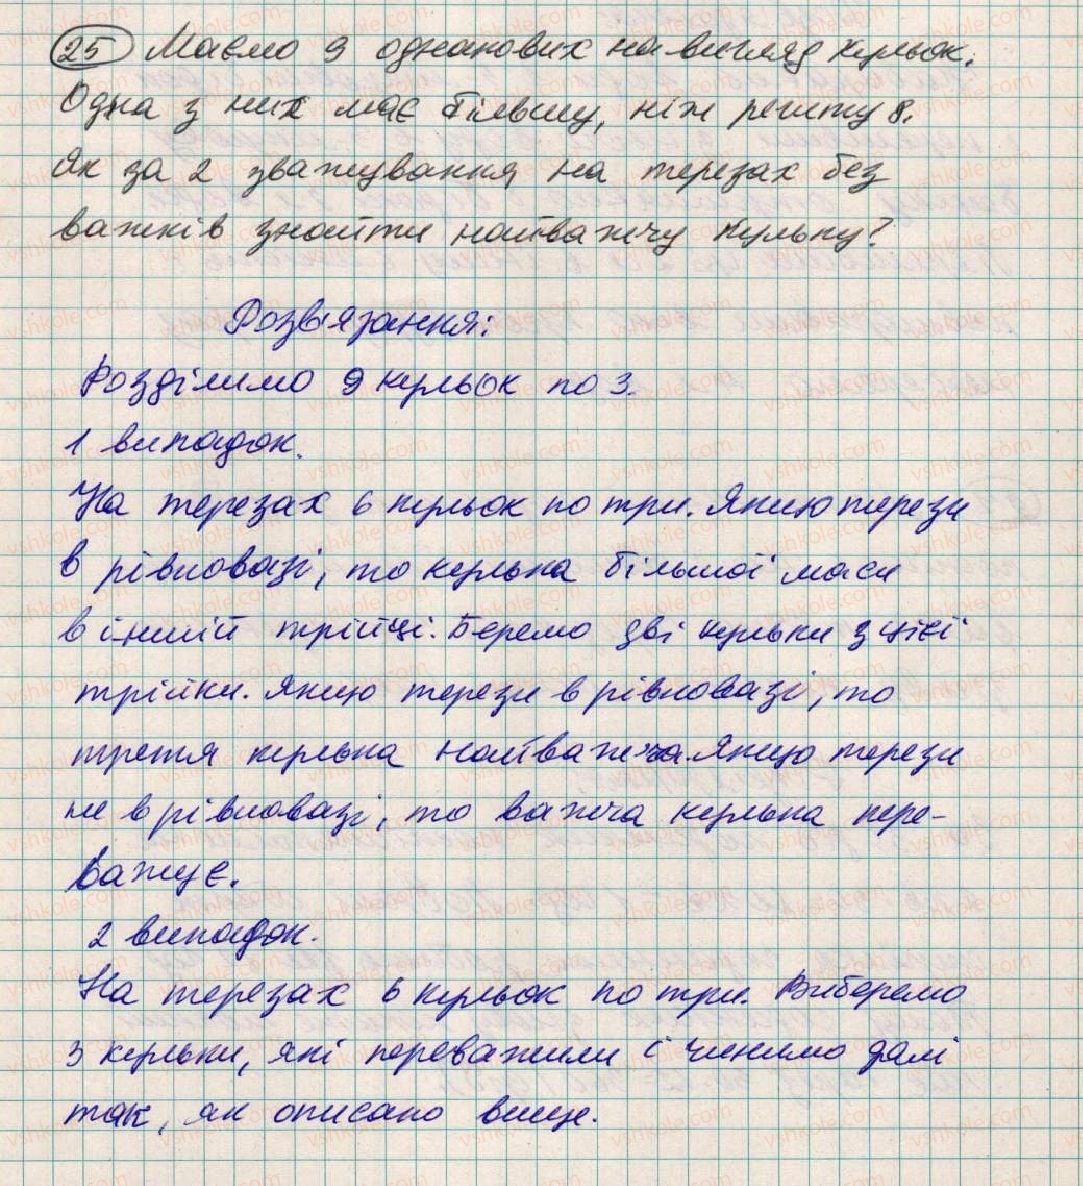 25 Маємо 9 однакових на вигляд кульок.
Одна з них має більшу, ніж решту 8.
Як за 2 зважування на терезах без
важків знайти найважчу кульку?
Розв'язання:
Розділимо 9 кульок по 3.
1 випадок.
На терезах 6 кульок по три. Якщо терези
в рівновазі, то кулька більшої маси
в іншій трійці. Беремо дві кульки з цієї
трійки. Якщо терези в рівновазі, то
третя кулька найважча. Якщо терези
не в рівновазі, то важча кулька пере-
важує.
2 випадок.
На терезах 6 кульок по три. Виберемо
3 кульки, які переважили і чинимо далі
так, як описано вище.